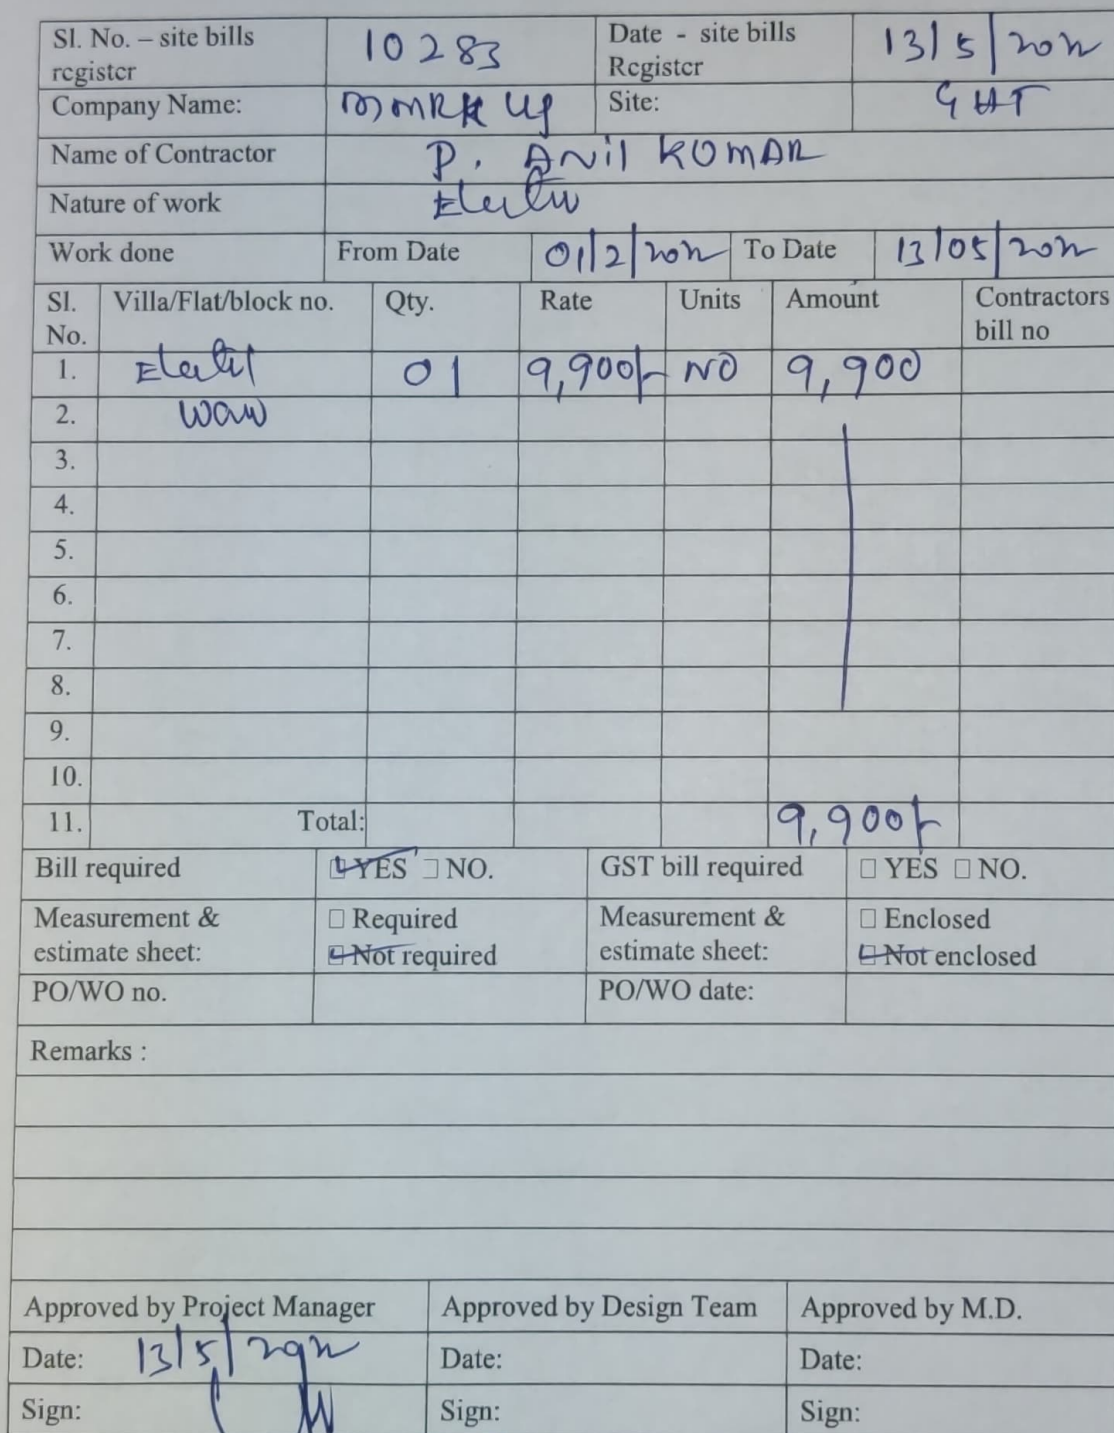 Sl. No. – site bills register 10283 Date - site bills Register 13/5/202
Company Name: MMRK Site: GHT
Name of Contractor P. Anil KUMAR
Nature of work
Work done From Date 01/2/202 To Date 13/05/202
Sl. No. Villa/Flat/block no. Qty. Rate Units Amount Contractors bill no
1. 01 9,900/- NO 9,900
2.
3.
4.
5.
6.
7.
8.
9.
10.
11. Total: 9,900/-
Bill required YES NO. GST bill required YES NO.
Measurement & estimate sheet: Required Measurement & estimate sheet: Enclosed
Not required Not enclosed
PO/WO no. PO/WO date:
Remarks :
Approved by Project Manager Approved by Design Team Approved by M.D.
Date: 13/5/202 Date: Date:
Sign: Sign: Sign: